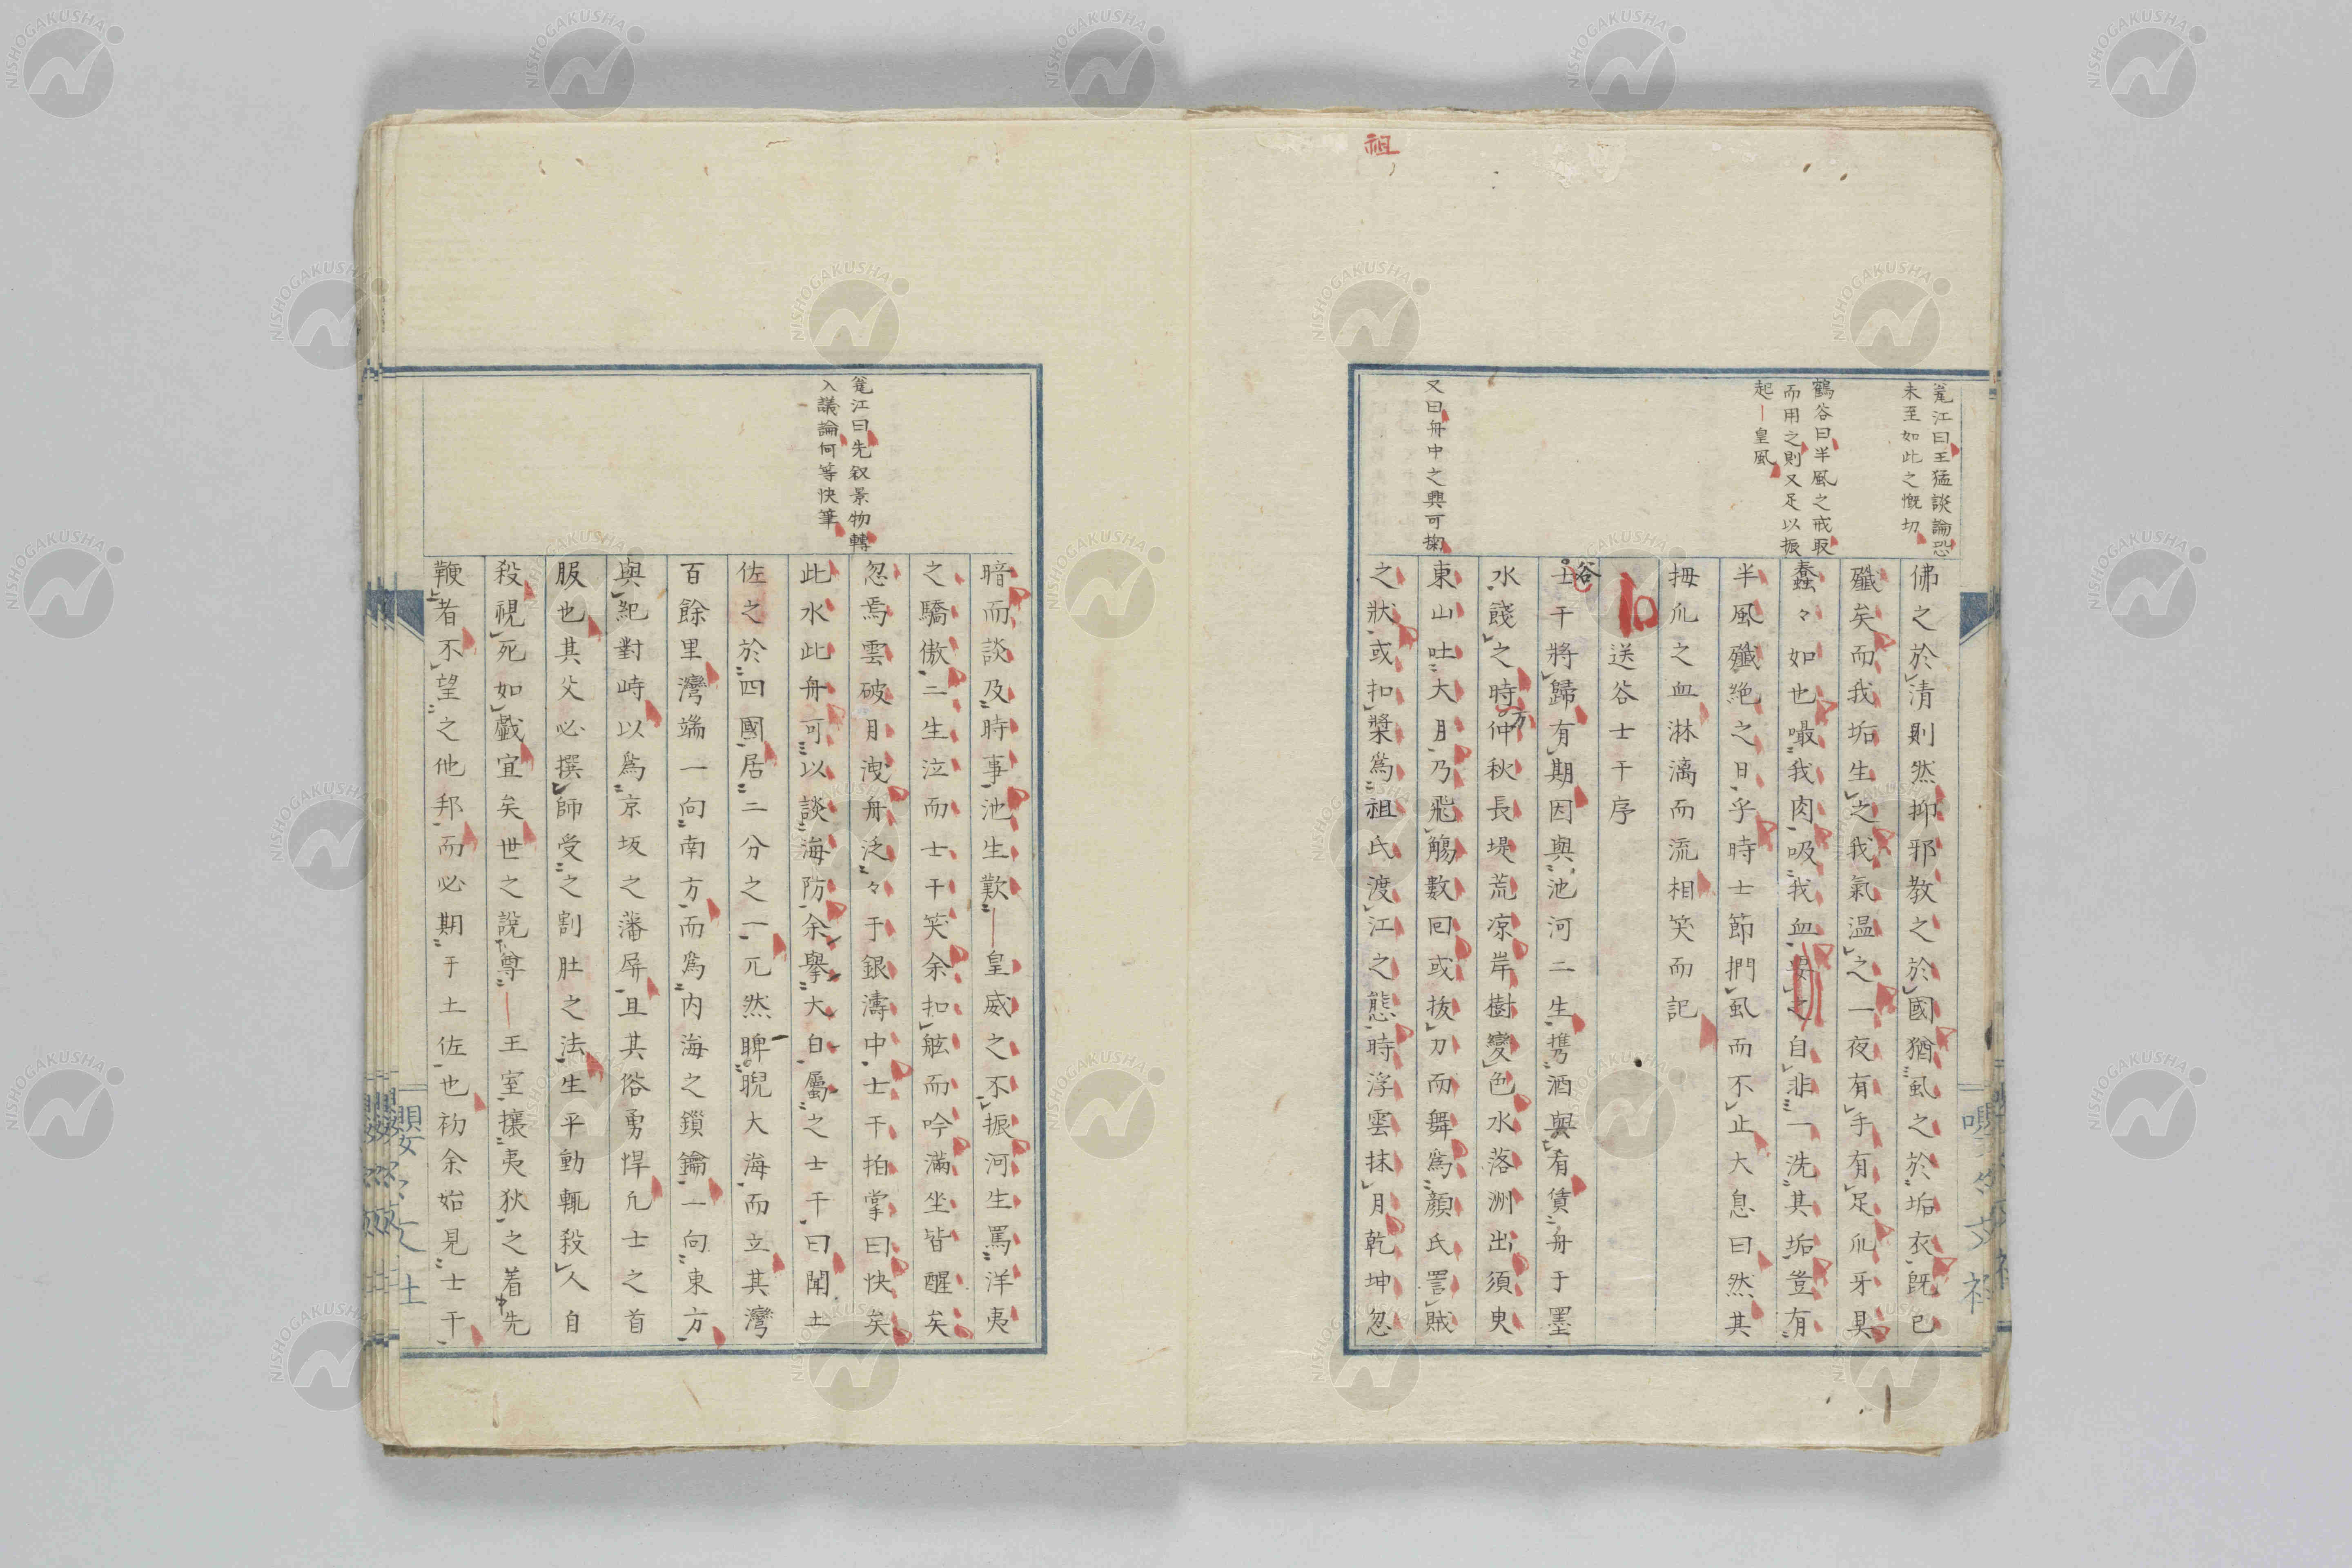 祖
箮江曰王猛談論恐
未至如此之慨切
鶴谷曰半風之戒取
而用之則又足以振
起皇風
又曰舟中之興可掬
佛之於清則然抑邪教之於國猶虱之於垢衣既已
殲矣而我垢生之我氣温之一夜有手有足爪牙具
蠢々如也嘬我肉吸我血之自非一洗其垢豈有
半風殲絶之日乎時士節捫虱而不止大息曰然其
拇爪之血淋漓而流相笑而記
送谷士干序
谷士干將歸有期因與池河二生携酒與肴賃舟于墨
水餞之時方仲秋長堤荒凉岸樹變色水落洲出須臾
東山吐大月乃飛觴數回或拔刀而舞為顏氏詈賊
之狀或扣槳為祖氏渡江之態時浮雲抹月乾坤忽
箮江曰先叙景物轉
入議論何等快筆
暗而談及時事池生歎皇威之不振河生罵洋夷
之驕傲二生泣而士干笑余扣舷而吟滿坐皆醒矣
忽焉雲破月洩舟泛々于銀濤中士干拍掌曰快矣
此水此舟可以談海防余擧大白屬之士干曰聞土
佐之於四國居二分之一兀然睥睨大海而立其灣
百餘里灣端一向南方而為内海之鎖鑰一向東方
與紀對峙以為京坂之藩屏且其俗勇悍凡士之首
服也其父必撰師受之割肚之法生平動輒殺人自
殺視死如戲宜矣世之説尊王室攘夷狄之着先
鞭者不望之他邦而必期于土佐也初余始見士干
NISHOGAKUSHA